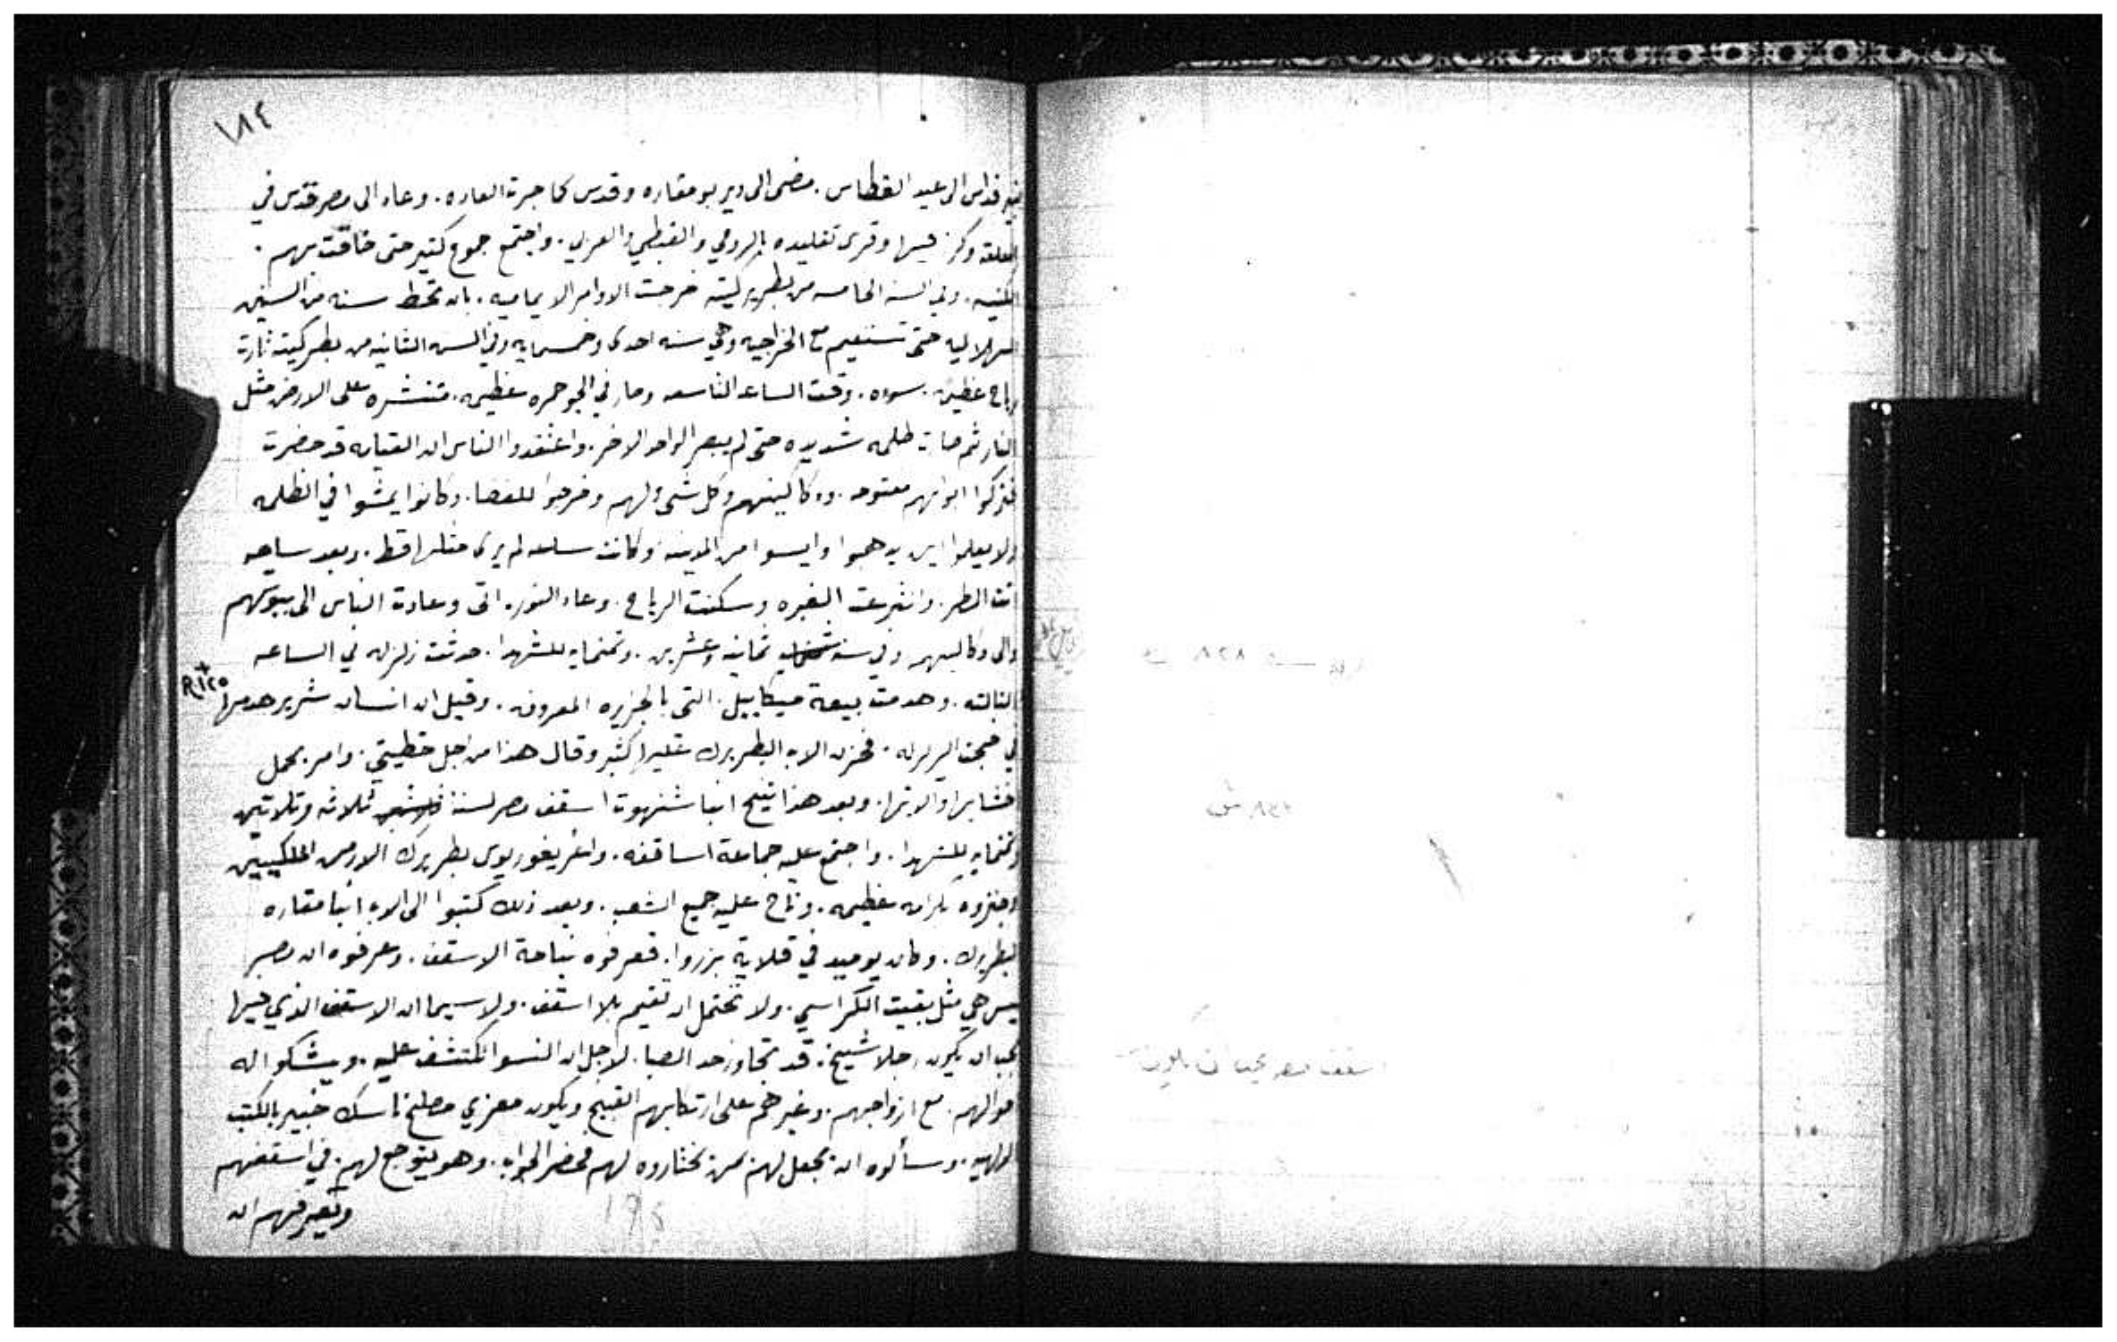 ١٨٤
فيه قداس الى عيد الغطاس. مضى الى دير بو مقاره وقدس كما جرت العاده. وعاد الى مصر قدس في
المعلقه وكرز فيها وقرى تقليده بالرومي والقبطي والعربي. واجتمع جموع كتير حتى ضاقت بهم.
الكنيسه. وفي السنه الخامسه من بطريركيته خرجت الاوامر الايماميه. بان تحط سنه من السنين
الهلاليه حتى تستقيم مع الخراجيه وهي سنه احدى وخمسمايه وفي السنه الثانيه من بطركيته ثارت
رياح عظيمه. سوده. وقت الساعه التاسعه وصار في الجو حمره عظيمه. منتشره على الارض مثل
النار ثم صارت ظلمه شديده حتى لم يبصر الواحد الاخر. واعتقدوا الناس ان القيامه قد حضرت
فتركوا ابوابهم مفتوحه. ودكاكينهم وكل شى لهم وخرجوا للفضا. وكانوا يمشوا في الظلمه
ولا يعلموا اين يدهبوا وايسوا من المدينه وكانت ساعه لم يرى مثلها قط. وبعد ساعه
اتت المطر. وانقرعت الغبره وسكنت الرياح. وعاد النور اتى وعادت الناس الى بيوتهم
والى دكاكينهم وفي سنه ثمانيه وعشرين. وتمنمايه للشهدا. حدثت زلزله في الساعه
التالته. وهدمت بيعة ميكاييل. التي بالجزيره المعروفه. وقيل ان انسان شرير هدمها
R ١٢٥
في حجت الزلزله. فحزن الاب البطريرك عليها كثير وقال هذا من اجل خطيتي. وامر بحمل
خشابها والاتها. وبعد هذا تنيح انبا شنهوت اسقف مصر لسنة ثلاثه وتلاتين
وتمنمايه للشهدا. واجتمع عليه جماعة اساقفه. واغريغوريوس بطريرك الارمن الملكييين
وجنزوه بكرامه عظيمه. وناح عليه جميع الشعب. وبعد ذلك كتبوا الى الاب انبا مقاره
البطريرك. وكان يوميد في قلاية بزروا. فعرفوه نياحة الاسقف. وعرفوه ان مصر
ليس هي مثل بقيت الكراسي. ولا تحتمل ان تقيم بلا اسقف. ولا سيما ان الاسقف الذي فيها
يجب ان يكون رجلا شيخ. قد تجاوز حد الصبا. لاجل ان النسوا تكتشف عليه. ويشكو اله
احوالهم. مع ازواجهم. وغيرهم على ارتكابهم القبيح ويكون معزي مصلح ناسك خبير بالكتب
الالهيه. وسألوه ان يجعل لهم من يختاروه لهم فحضر الجواب. وهو يتوجع لهم. في اسقفهم
ويعرفهم ان
١٩٤
سنة ٨٢٨
٨٣٣ ش
اسقف مصر يجب ان يكون